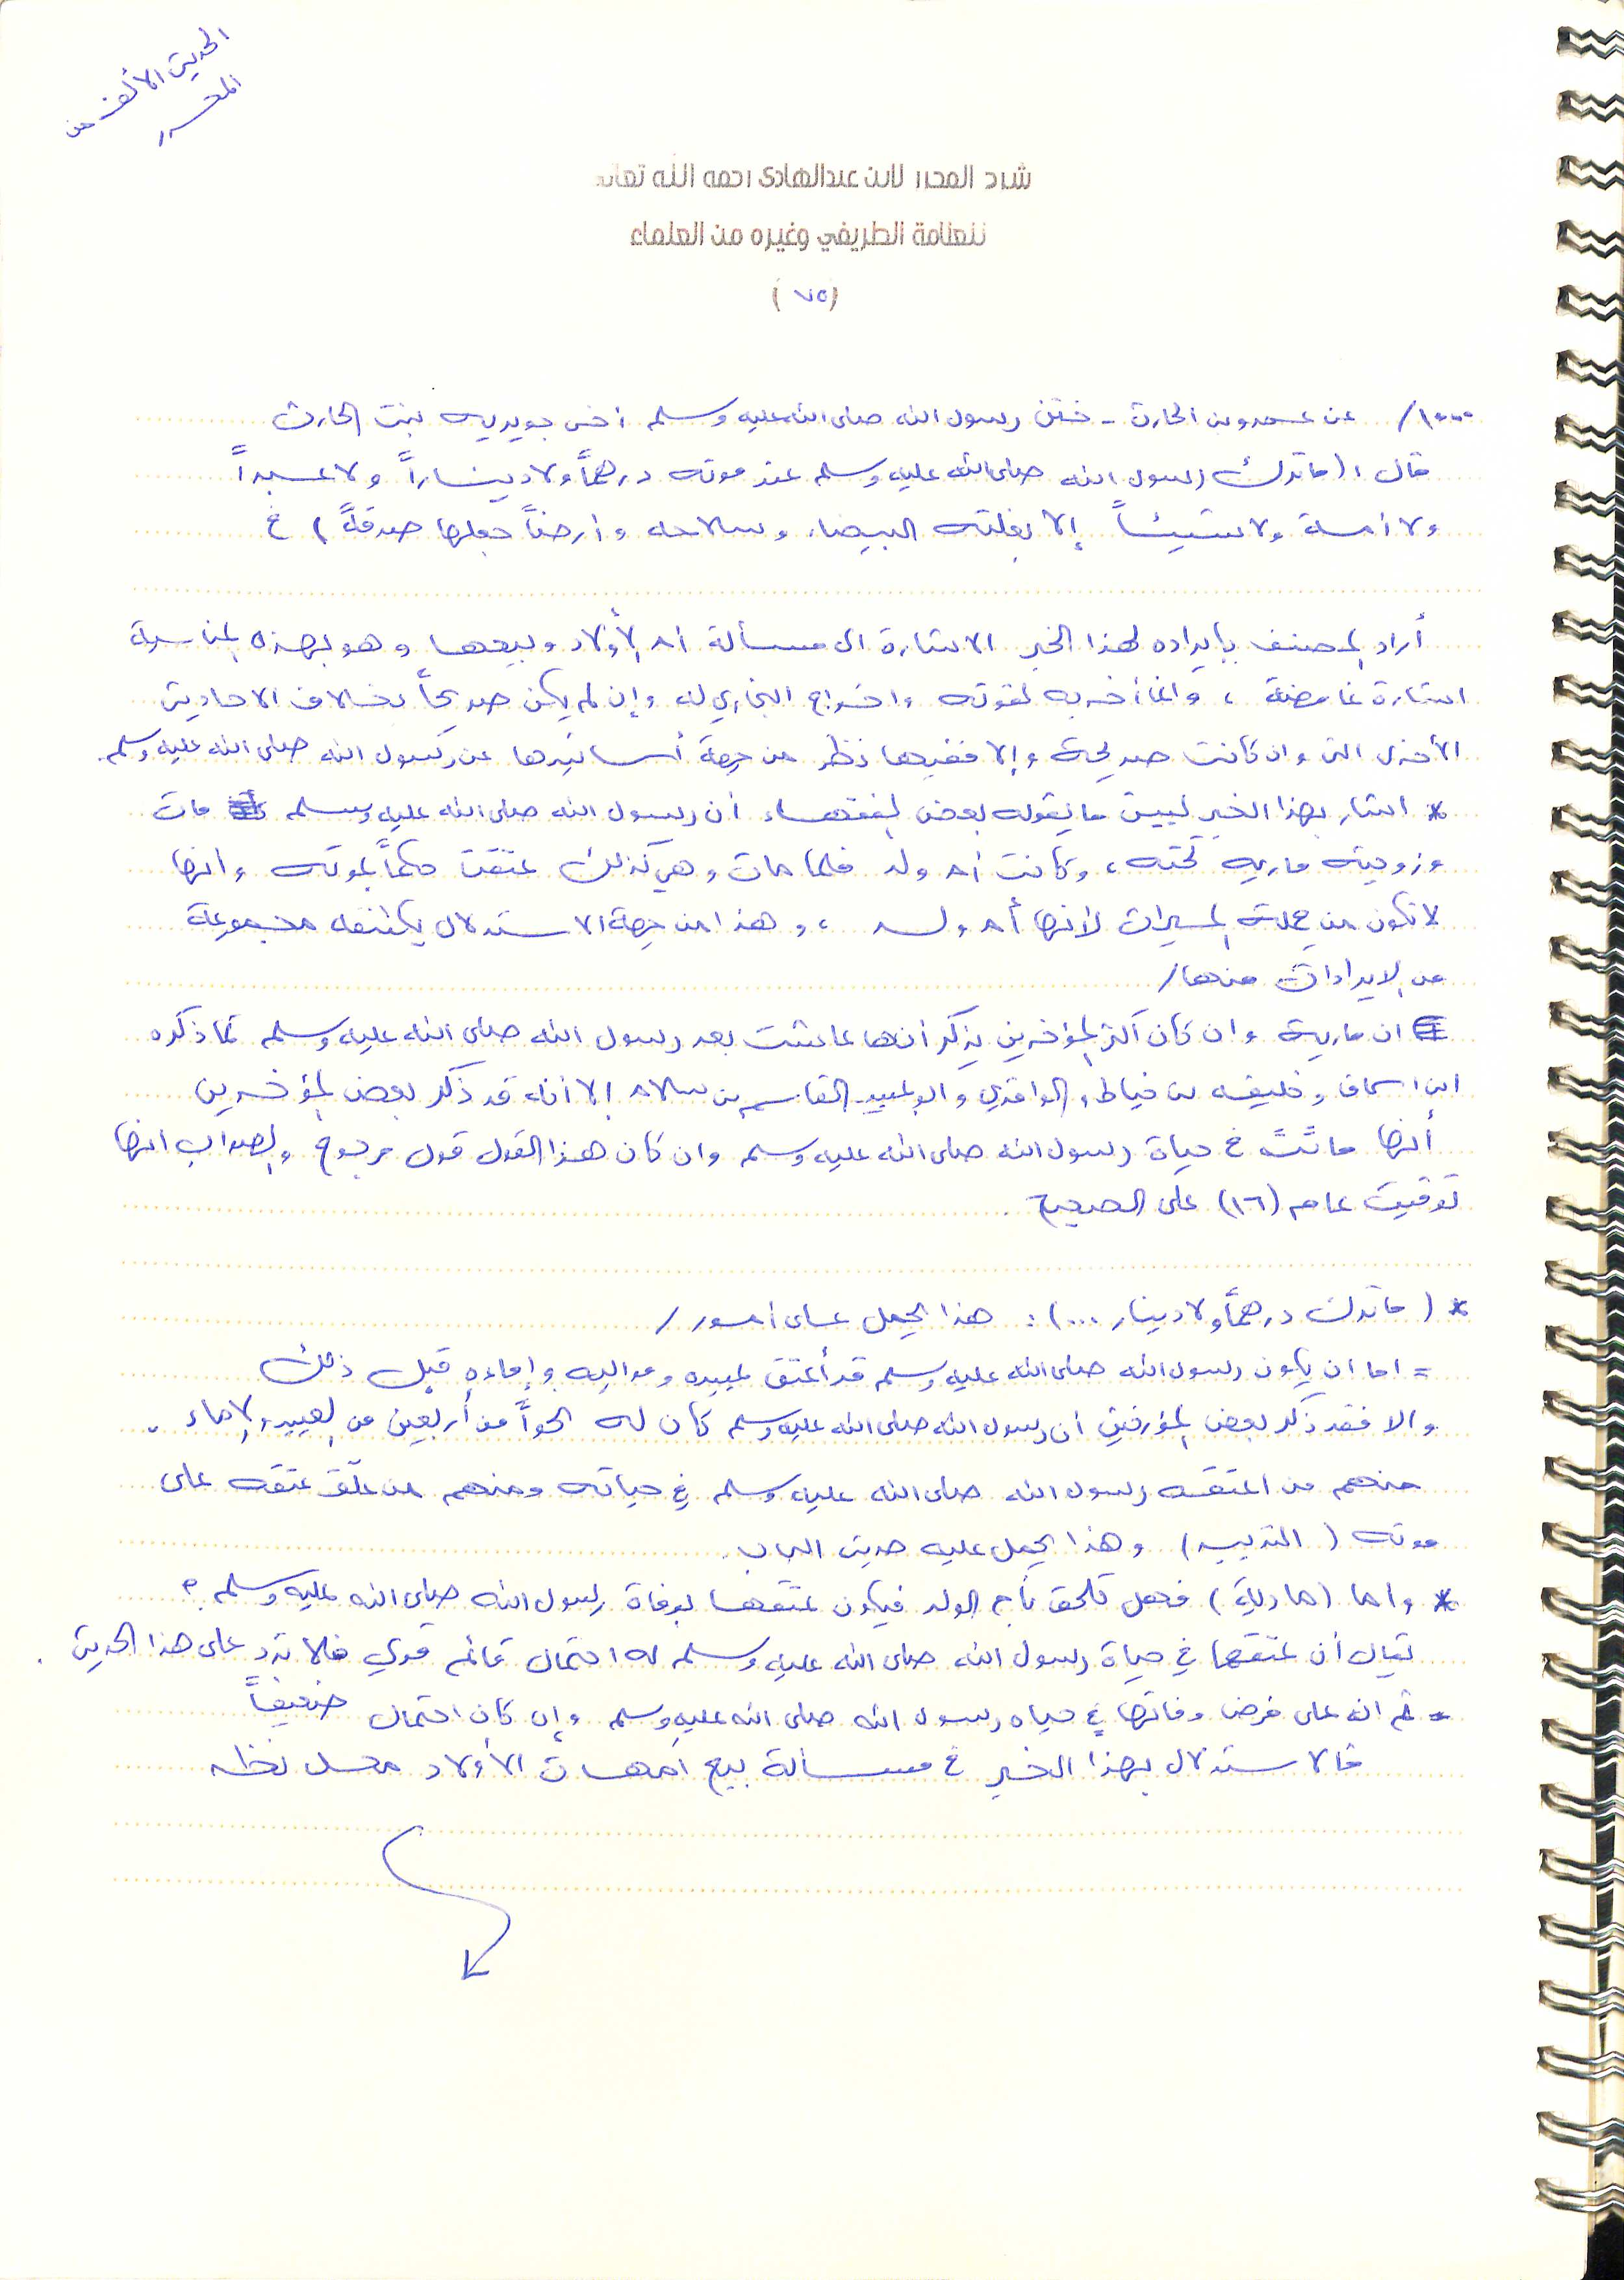 الحديث الألف من
المحرر
شرح المحرر لابن عبدالهادي رحمه الله تعالى
للعلامة الطريفي وغيره من العلماء
(٧٥)
١٠٠٠/ عن عمرو بن الحارث - ختن رسول الله صلى الله عليه وسلم أخي جويريه بنت الحارث
قال : (ما ترك رسول الله صلى الله عليه وسلم عند موته درهماً ولا ديناراً ولا عبداً
ولا أمة ولا شيئاً إلا بغلته البيضاء وسلاحه وأرضاً جعلها صدقةً) خ
أراد المصنف بإيراده لهذا الخبر الاشارة الى مسألة أم الأولاد وبيعها وهو بهذه المناسبة
اشارة غامضة ، وانما أخر به لقوته واخراج البخاري له وإن لم يكن صريحاً بخلاف الاحاديث
الأخرى التي وان كانت صريحة وإلا ففيها نظر من جهة أسانيدها عن رسول الله صلى الله عليه وسلم.
* اشار بهذا الخبر ليبين ما يقوله بعض الفقهاء أن رسول الله صلى الله عليه وسلم مات
وزوجته ماريه تحته ، وكانت أم ولد فلما مات وهي كذلك عتقت حكماً بموته وانها
لا تكون من جملة الميراث لأنها أم ولد ، وهذا من جهة الاستدلال يكتنفه مجموعة
من الايرادات منها/
ان مارية وان كان أكثر المؤخرين يذكر أنها عاشت بعد رسول الله صلى الله عليه وسلم كما ذكره
ابن اسحاق وخليفه بن خياط والواقدي وابوعبيد القاسم بن سلام إلا أنه قد ذكر بعض المؤخرين
أنها ماتت في حياة رسول الله صلى الله عليه وسلم وان كان هذا القول قول مرجوح والصواب انها
توفيت عام (١٦) على الصحيح .
* (ما ترك درهماً ولا دينار ...) : هذا يحمل على أمور /
= اما ان يكون رسول الله صلى الله عليه وسلم قد أعتق عبيده ومواليه وإماءه قبل ذلك
والا فقد ذكر بعض المؤرخين أن رسول الله صلى الله عليه وسلم كان له نحواً من أربعين من العبيد والإماء .
منهم من اعتقه رسول الله صلى الله عليه وسلم في حياته ومنهم من علّق عتقه على
موته (التدبير) وهذا يحمل عليه حديث الباب .
* واما (مارية) فهل تلحق بأم الولد فيكون عتقها بوفاة رسول الله صلى الله عليه وسلم ؟
يقال أن عتقها في حياة رسول الله صلى الله عليه وسلم له احتمال قائم قوي فلا ترد على هذا الحديث .
= ثم انه على فرض وفاتها في حياه رسول الله صلى الله عليه وسلم وإن كان احتمال ضعيفاً
فالاستدلال بهذا الخبر في مسألة بيع أمهات الأولاد محل نظر